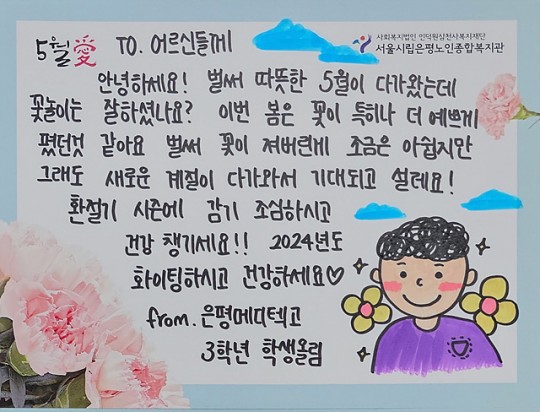 5월 愛 TO. 어르신들께
사회복지법인 인덕원삼천사복지재단
서울시립은평노인종합복지관
안녕하세요! 벌써 따뜻한 5월이 다가왔는데
꽃놀이는 잘하셨나요? 이번 봄은 꽃이 특히나 더 예쁘게
폈던것 같아요 벌써 꽃이 져버린게 조금은 아쉽지만
그래도 새로운 계절이 다가와서 기대되고 설레요!
환절기 시즌에 감기 조심하시고
건강 챙기세요!! 2024년도
화이팅하시고 건강하세요♡
from. 은평메디텍고
3학년 학생올림